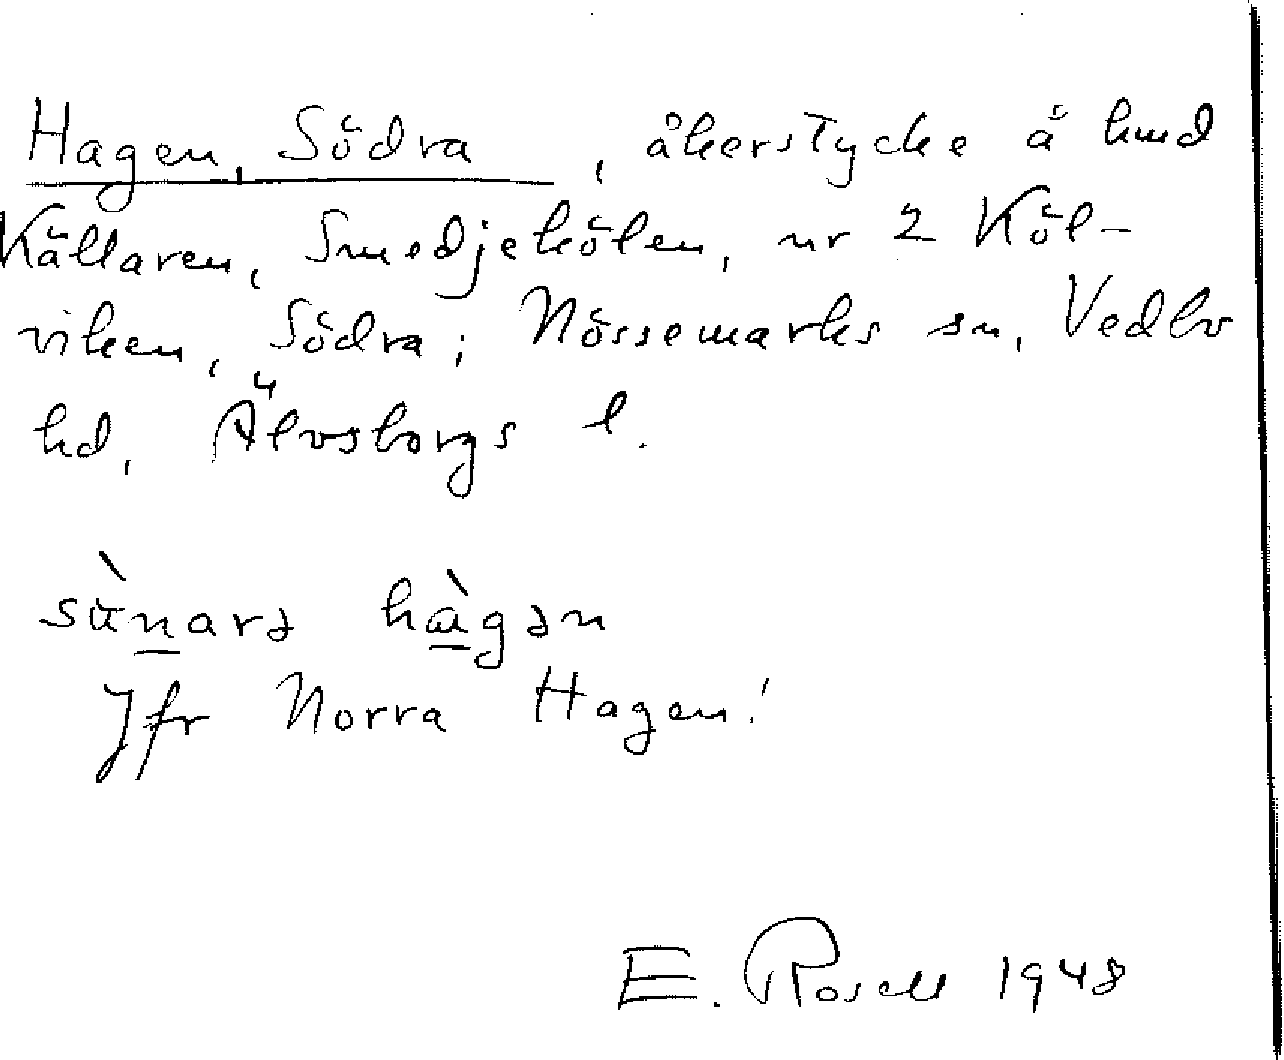 Hagen, Södra, åkerstycke å hmd
Källaren, Smedjekölen, nr 2 Köl-
viken, Södra; Nössemarks sn, Vedbo
hd, Älvsborgs l.
sùnarə hàgən
Jfr Norra Hagen!
E. Rosell 1948